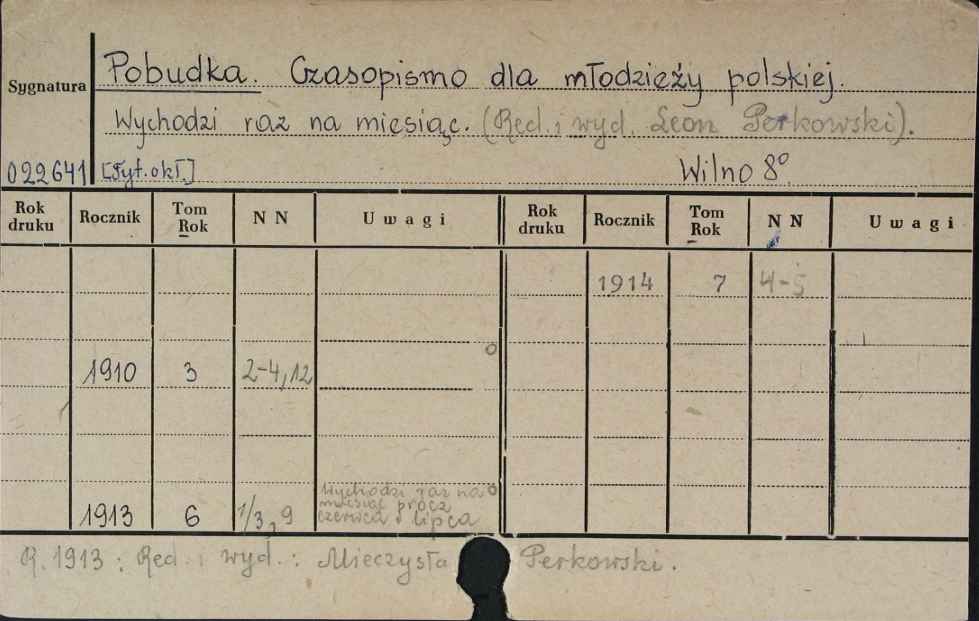 Pobudka. Czasopismo dla młodzieży polskiej.
Sygnatura
Wychodzi raz na miesiąc. (Red. i wyd. Leon Perkowski).
022641 [Tyt. okł.] Wilno 8º.
Rok druku Rocznik Tom Rok N N Uwagi Rok druku Rocznik Tom Rok N N Uwagi
1914 7 4-5
1910 3 2-4, 12
Wychodzi raz na
miesiąc prócz
1913 6 1/3, 9 czerwca i lipca
R. 1913: Red. i wyd.: Mieczysła Perkowski.